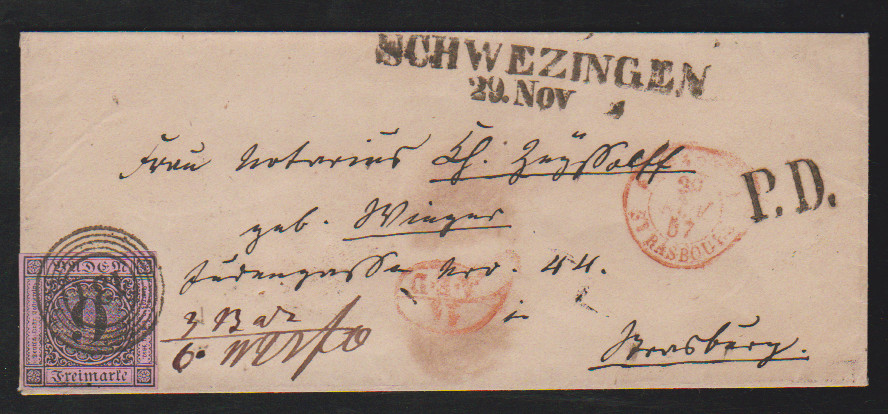 SCHWEZINGEN
29. NOV 4
Frau Notarius Ch. Zeyssolff
geb. Winger
Judengasse Nro. 44.
in
Strasburg.
P.D.
29
NOV
57
STRASBOURG
BADEN
9
Freimarke
6